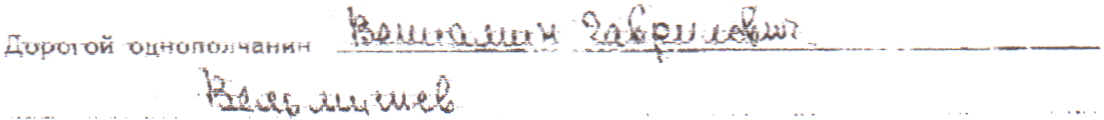 Дорогой однополчанин Вениамин Гаврилович
Ведьмишев